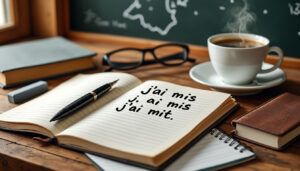 j'ai mis
y. ai mis
j'ai mit.